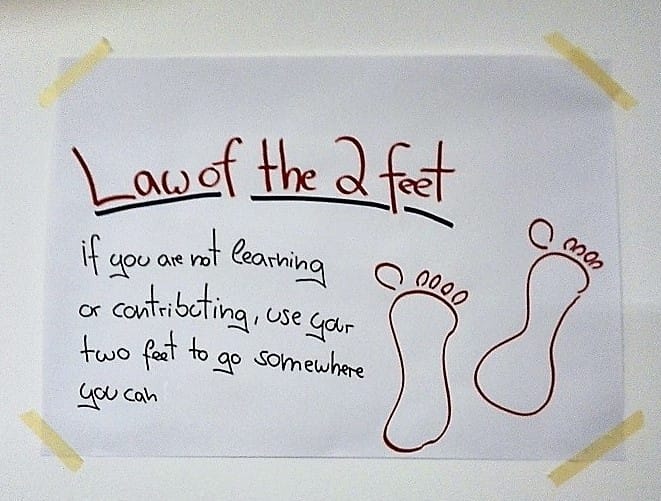 Law of the 2 feet
if you are not learning
or contributing, use your
two feet to go somewhere
you can